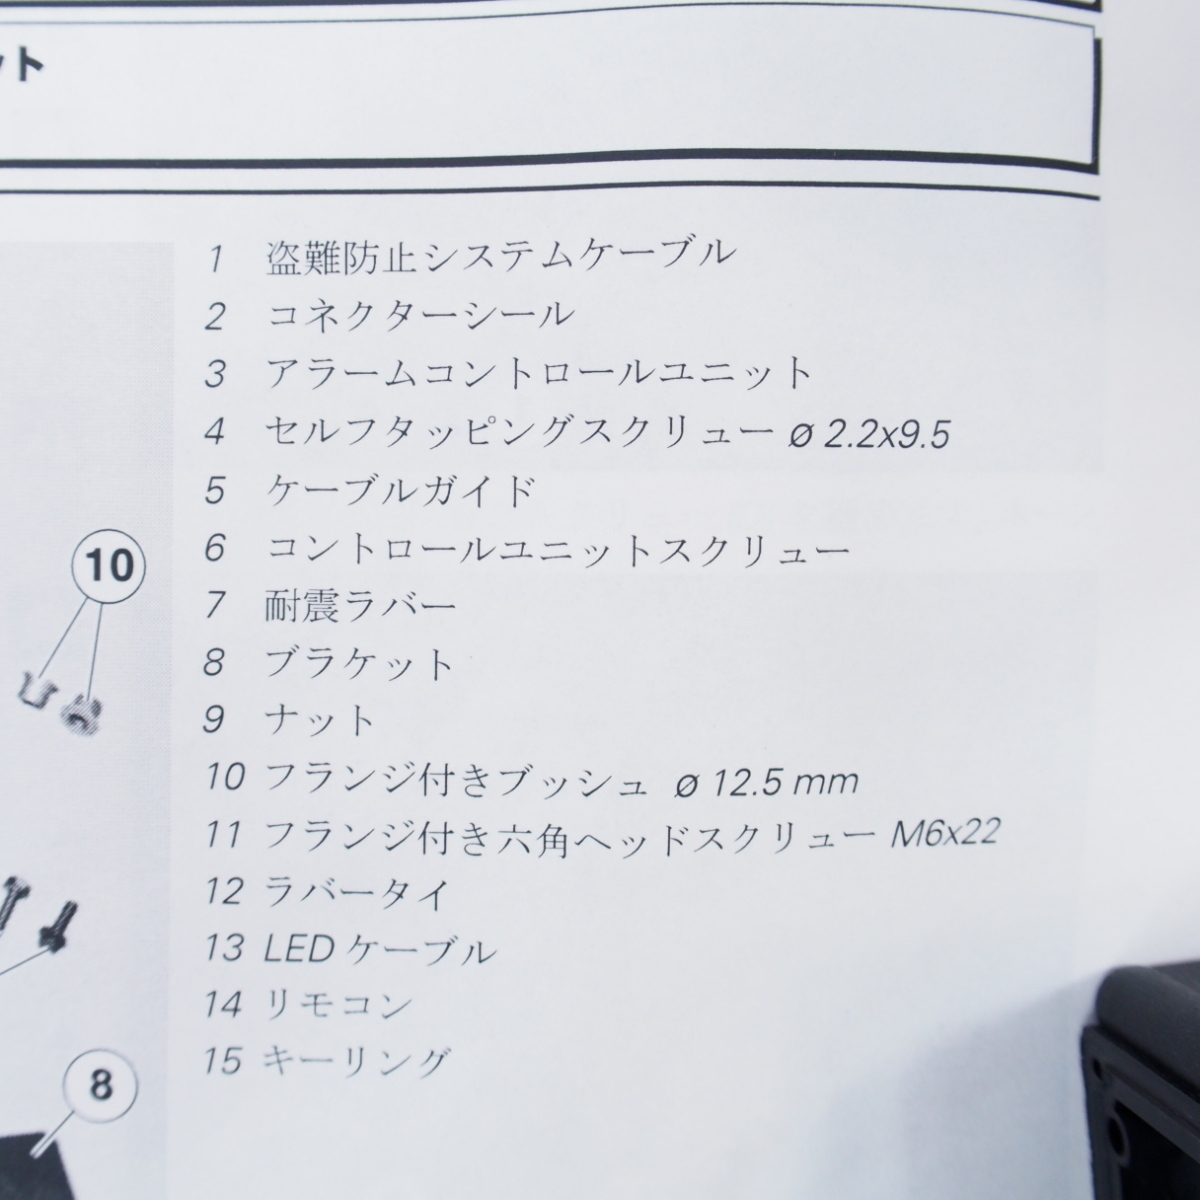 ット
1 盗難防止システムケーブル
2 コネクターシール
3 アラームコントロールユニット
4 セルフタッピングスクリュー ø 2.2x9.5
5 ケーブルガイド
6 コントロールユニットスクリュー
7 耐震ラバー
8 ブラケット
9 ナット
10 フランジ付きブッシュ ø 12.5 mm
11 フランジ付き六角ヘッドスクリュー M6x22
12 ラバータイ
13 LED ケーブル
14 リモコン
15 キーリング
10
8